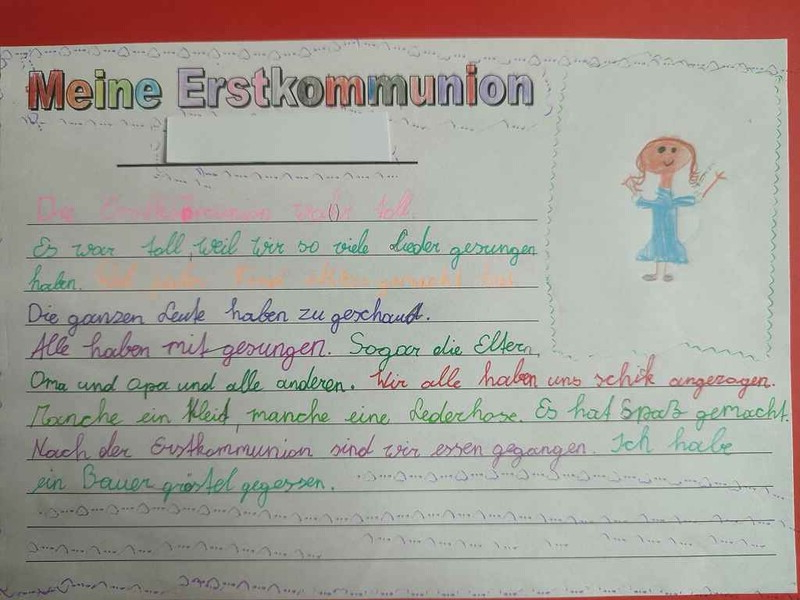 Meine Erstkommunion
Die Erstkommunion war toll.
Es war toll, weil wir so viele Lieder gesungen
haben. Weil jedes Kind etwas gemacht hat.
Die ganzen Leute haben zu geschaut.
Alle haben mit gesungen. Sogar die Eltern,
Oma und Opa und alle anderen. Wir alle haben uns schik angezogen.
Manche ein Kleid, manche eine Lederhose. Es hat Spaß gemacht.
Nach der Erstkommunion sind wir essen gegangen. Ich habe
ein Bauer gröstel gegessen.